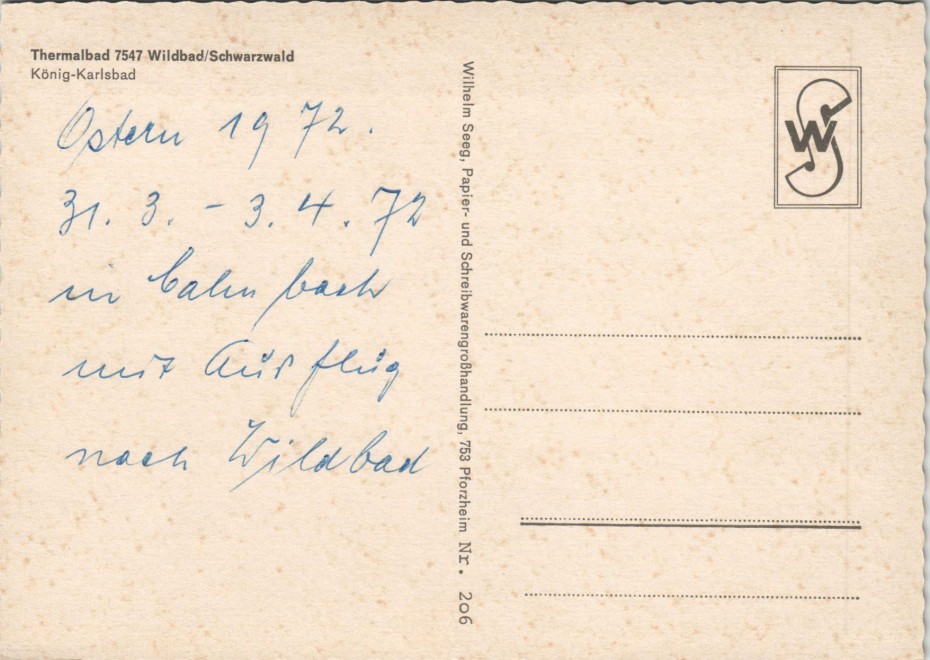 Thermalbad 7547 Wildbad/Schwarzwald
König-Karlsbad
Ostern 1972.
31. 3. - 3. 4. 72
in Calmbach
mit Ausflug
nach Wildbad
Wilhelm Seeg, Papier- und Schreibwarengroßhandlung, 753 Pforzheim Nr. 206
WS